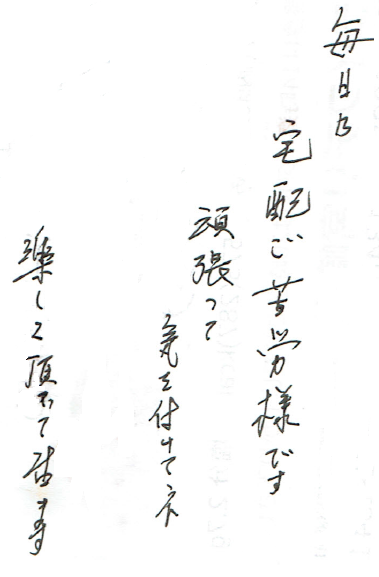 毎日の
宅配ご苦労様です
頑張って
気を付けてネ
楽しく頂いて居ます